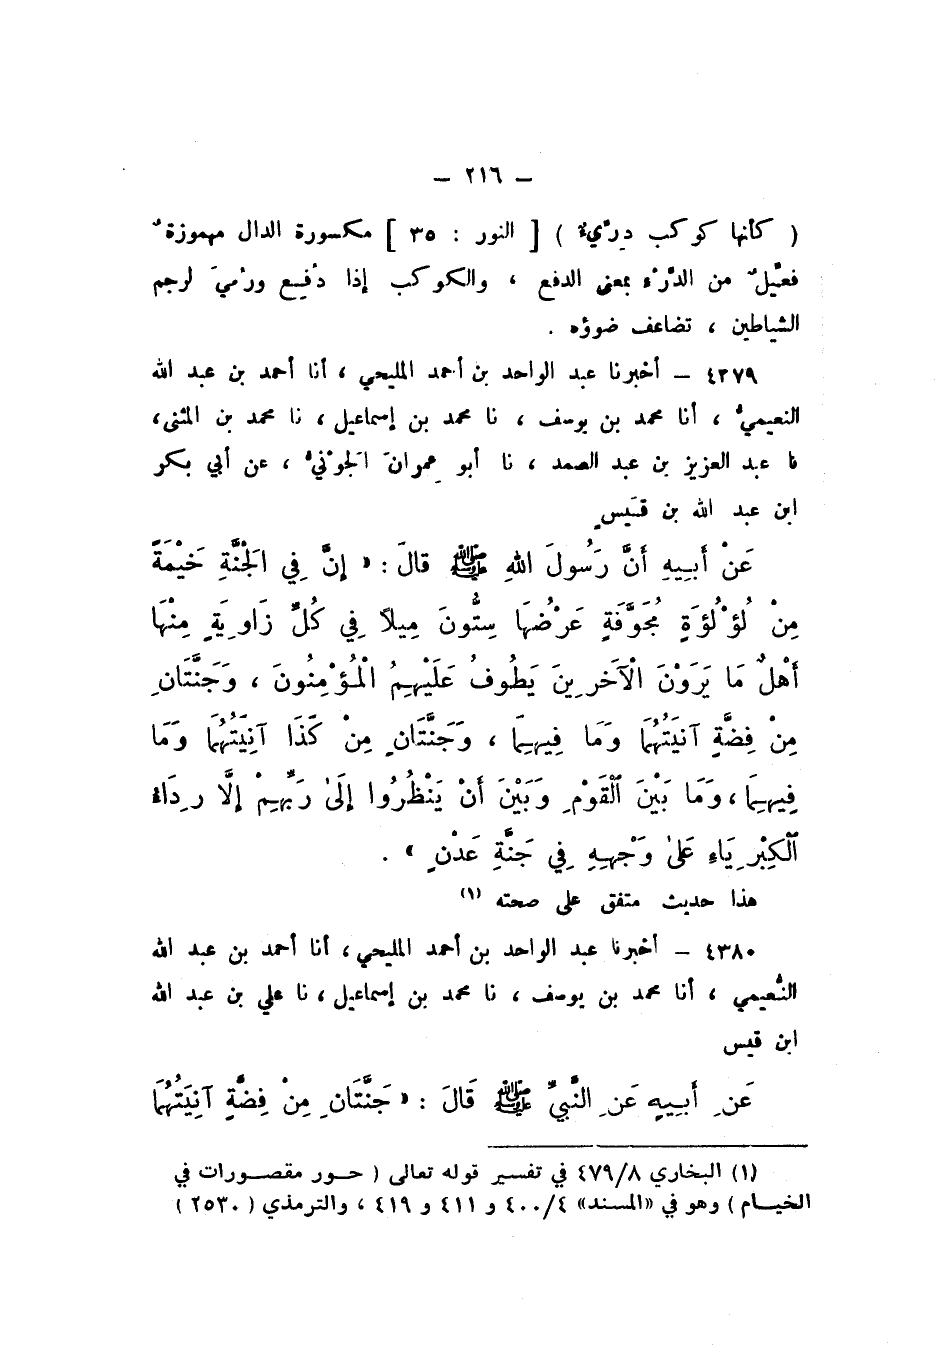 – ٢١٦ –
( كأنها كوكب دِرِّيءٌ ) [ النور : ٣٥ ] مكسورة الدال مهموزةٌ
فعّيلٌ من الدَّرْء بمعنى الدفع ، والكوكب إذا دُفِع ورُميَ لرجم
الشياطين ، تضاعف ضوؤه .
٤٣٧٩ – أخبرنا عبد الواحد بن أحمد المليحي ، أنا أحمد بن عبد الله
النعيميُّ ، أنا محمد بن يوسف ، نا محمد بن إسماعيل ، نا محمد بن المثنى،
نا عبد العزيز بن عبد الصمد ، نا أبو عِمران الجَوْنيُّ ، عن أبي بكر
ابن عبد الله بن قَيسٍ
عَنْ أَبِيهِ أَنَّ رَسُولَ اللهِ ﷺ قالَ : « إنَّ فِي الْجَنَّةِ خَيْمَةً
مِنْ لُؤْلُؤَةٍ مُجَوَّفَةٍ عَرْضُهَا سِتُّونَ مِيلاً فِي كُلِّ زَاوِيَةٍ مِنْهَا
أَهْلٌ مَا يَرَوْنَ الْآخَرِينَ يَطُوفُ عَلَيْهِمُ الْمُؤْمِنُونَ ، وَجَنَّتَانِ
مِنْ فِضَّةٍ آنِيَتُهُمَا وَمَا فِيهِمَا ، وَجَنَّتَانِ مِنْ كَذَا آنِيَتُهُمَا وَمَا
فِيهِمَا ، وَمَا بَيْنَ الْقَوْمِ وَبَيْنَ أَنْ يَنْظُرُوا إلَىٰ رَبِّهِمْ إلَّا رِدَاءُ
الْكِبْرِيَاءِ عَلىٰ وَجْهِهِ فِي جَنَّةِ عَدْنٍ » .
هذا حديث متفق على صحته (١)
٤٣٨٠ – أخبرنا عبد الواحد بن أحمد المليحي ، أنا أحمد بن عبد الله
النُّعيمي ، أنا محمد بن يوسف ، نا محمد بن إسماعيل ، نا علي بن عبد الله
ابن قيس
عَنِ أَبِيهِ عَنِ النَّبِيِّ ﷺ قَالَ : « جَنَّتَانِ مِنْ فِضَّةٍ آنِيَتُهُمَا
(١) البخاري ٤٧٩/٨ في تفسير قوله تعالى ( حور مقصورات في
الخيام ) وهو في «المسند» ٤٠٠/٤ و ٤١١ و ٤١٩ ، والترمذي ( ٢٥٣٠ )